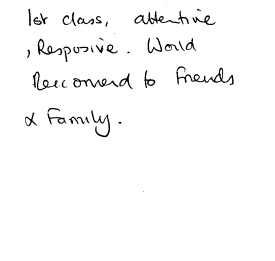 1st class, attentive
, Resposive. Would
Reccomend to Friends
& Family.